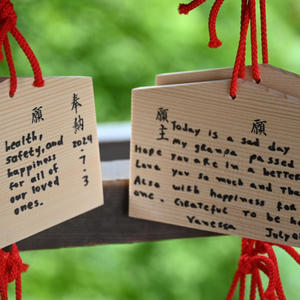 奉納
願
2024
7
3
health,
safety, and
happiness
for all of
our loved
ones.
願
願主
Today is a sad day
my granpa passed
Hope you are in a better
Love you so much and the
Also with happiness for
one. Grateful to be h
Vanessa
July